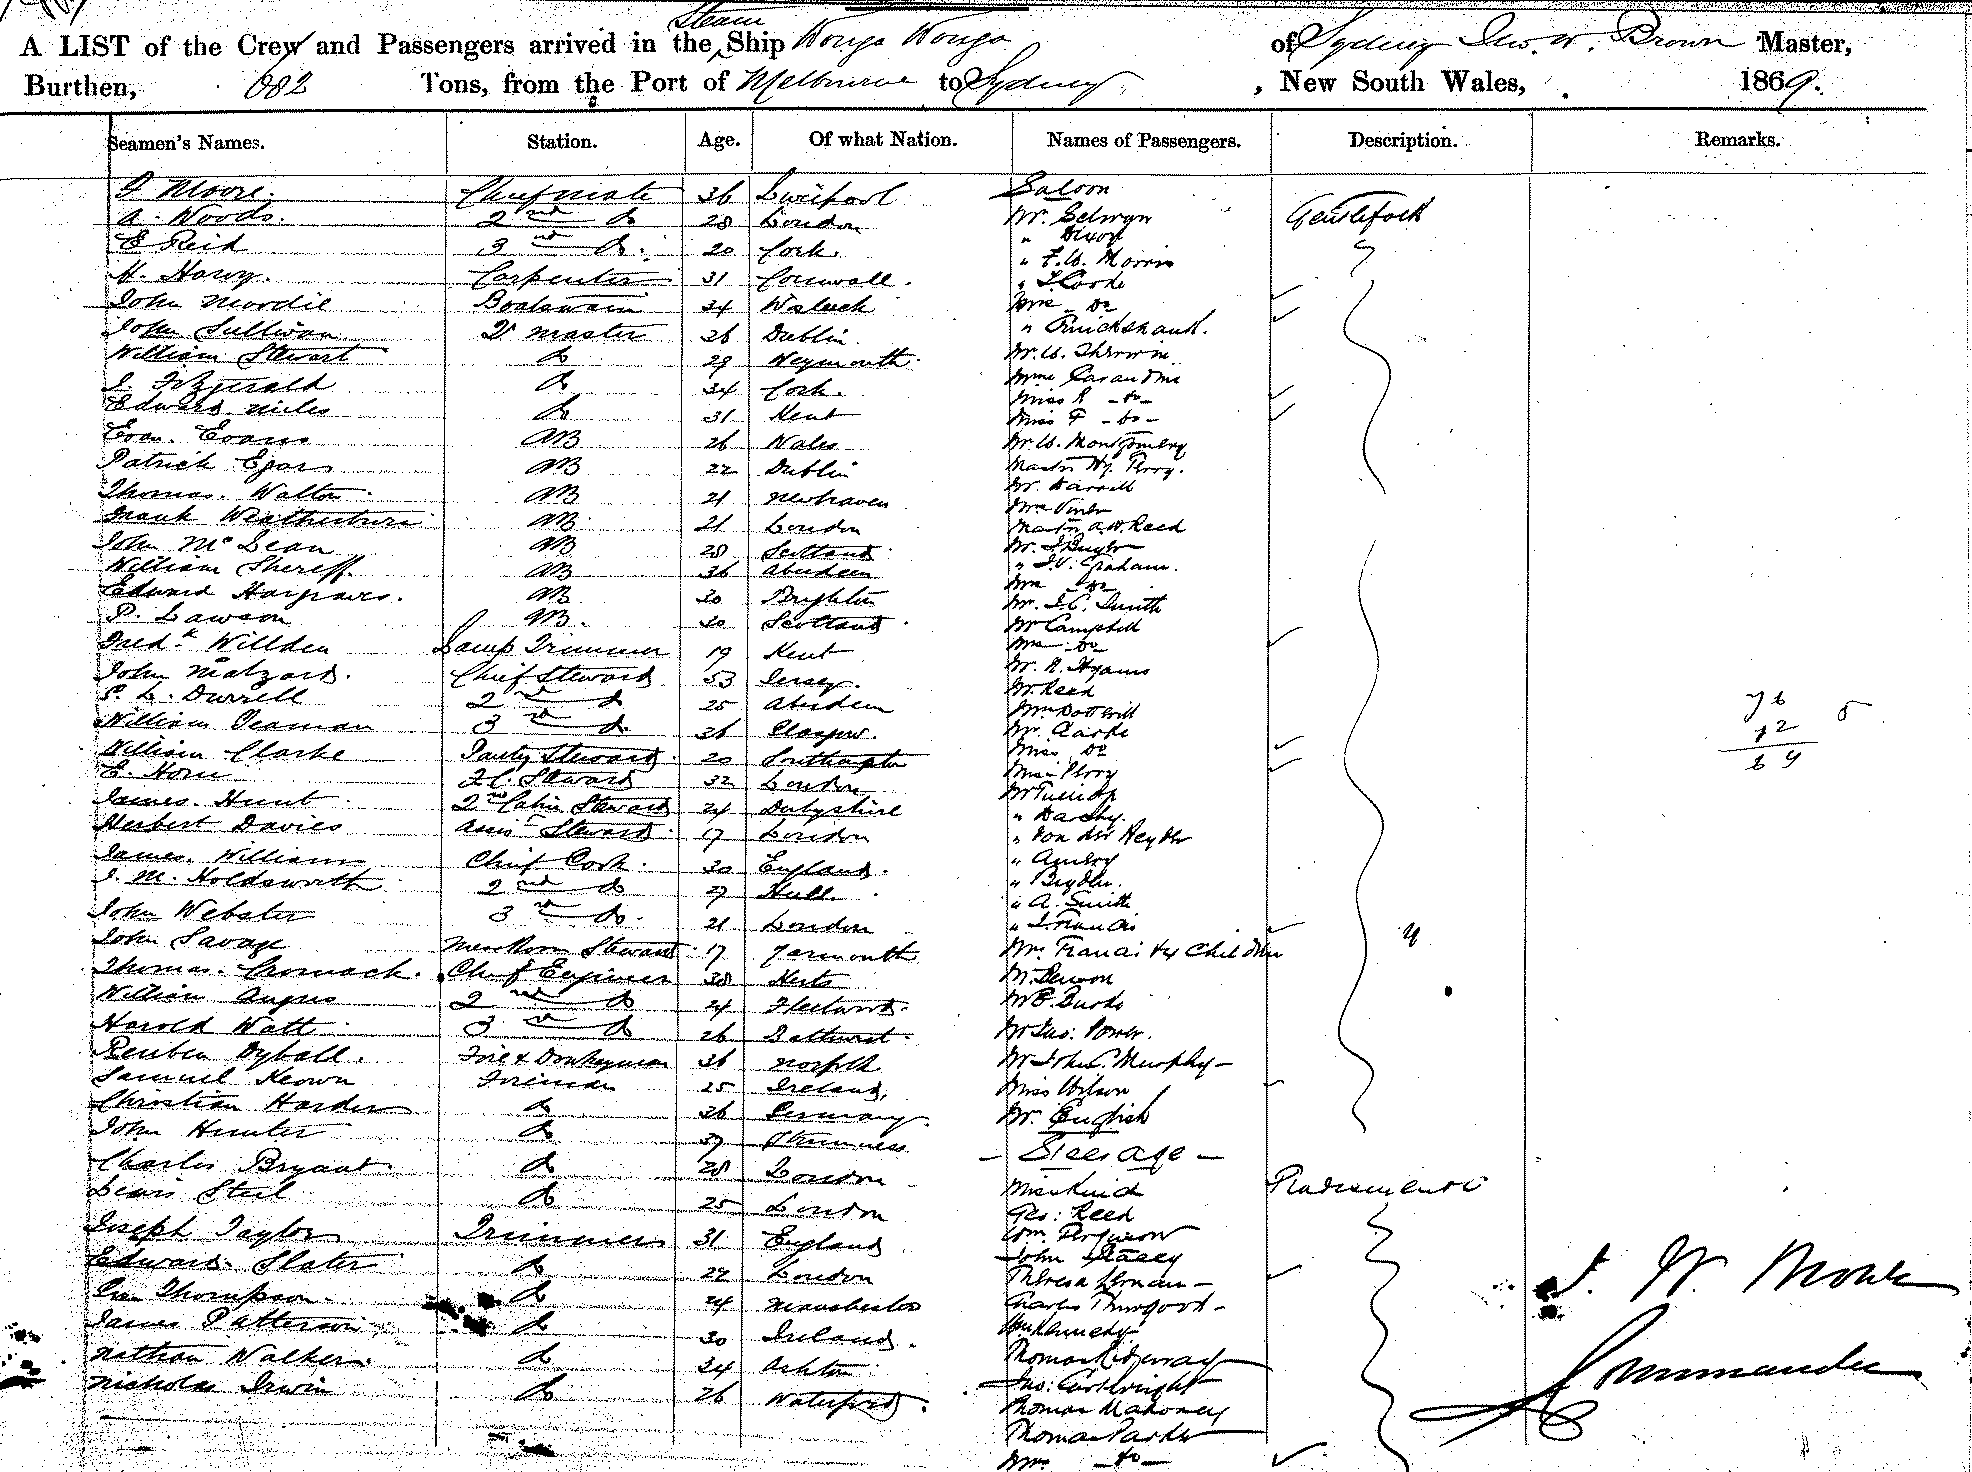 A LIST of the Crew and Passengers arrived in the Steam Ship Wonga Wonga of Sydney Jno. W. Brown Master,
Burthen, 682 Tons, from the Port of Melbourne to Sydney, New South Wales, 1869.
Seamen's Names. Station. Age. Of what Nation. Names of Passengers. Description. Remarks.
Saloon
Moore. Chief mate 36 Liverpool
A. Woods. 2nd do 28 London Mr. Selwyn Gentlefolk
E Reid 3rd do. 20 Cork. " Dixon
H. Carpenter 31 Cornwall. " F. W. Morris
John Mordie Boatswain 34 Mrs do
John Sullivan Qr master 26 Dublin " Cruickshank.
William Stewart do 29 Weymouth Mr. W. Sherwin
J. Fitzgerald do 34 Cork. Mme Carandini
Edward Miles do 31 Kent Miss R - do -
Miss F - do -
Evan. Evans AB 26 Wales Mr. W. Montgomery
Patrick Egan AB 22 Dublin Master Hy. Perry.
Thomas. Walton AB 21 Newhaven Mr. Darrell
Frank Weatherburn AB 21 London Master A. W. Reed
John McLean AB 28 Scotland
William Sheriff. AB 36 Aberdeen " J. V. Graham.
Edward Hargraves. AB 30 Brighton Mrs do
P. Lawson AB. 30 Scotland Mr. J. C. Smith
Mr Campbell
Fredk. Willden Lamp Trimmer 19 Kent Mrs do
John Malzard. Chief Steward 53 Jersey. Mr. R. Hyams
S. L. Durrell 2nd do 25 Aberdeen Mr. Reed
William Yeaman 3rd do 26 Glasgow. Mr. Clarke
William Clarke Pantry Steward 20 Southampton Miss do
E. Horn F.C. Steward 32 London Miss Perry
James. Hunt 2nd Cabin Steward 24 Derbyshire " Darchy.
Herbert Davies Assist Steward 17 London " Von der Heyden
James. Williams Chief Cook. 30 England. " Amery
J. M. Holdsworth 2nd do 27 Hull.
John Webster 3rd do. 21 London " A. Smith
" J. Francis
John Savage Messroom Steward 17 Yarmouth Mrs Francis & 4 Children 4
Thomas. Cromack. Chief Engineer 38 Herts
William Angus 2nd do 24 Fleetwood. Mr E. Burke
Harold Watt 3rd do 26 Bathurst. Mr Jas: Power.
Reuben Dyball. Fire & Donkeyman 36 Norfolk Mr John C. Murphy -
Samuel Keown Fireman 25 Ireland, Miss Wilson
Christian Harder do 26 Germany. Mr. English
John Hunter do 27 - Steerage -
Charles Bryant do 28 London
Lewis Steel do 25 London Geo: Reed
Joseph Taylor Trimmer 31 England Wm. Ferguson
John Stacey
Edward. Slater do 22 London
Thompson. do 24 Manchester Charles Thurgood -
James Patterson do 30 Ireland. Wm Kennedy
Thomas Ridgway
Nathan Walker do 34 Ashton Jno: Cartwright
Nicholas Irwin do 26 Waterford. Thomas Mahoney
Thomas Parker
Mrs - do -
Tradesmen &c
76 5
12
69
Commander